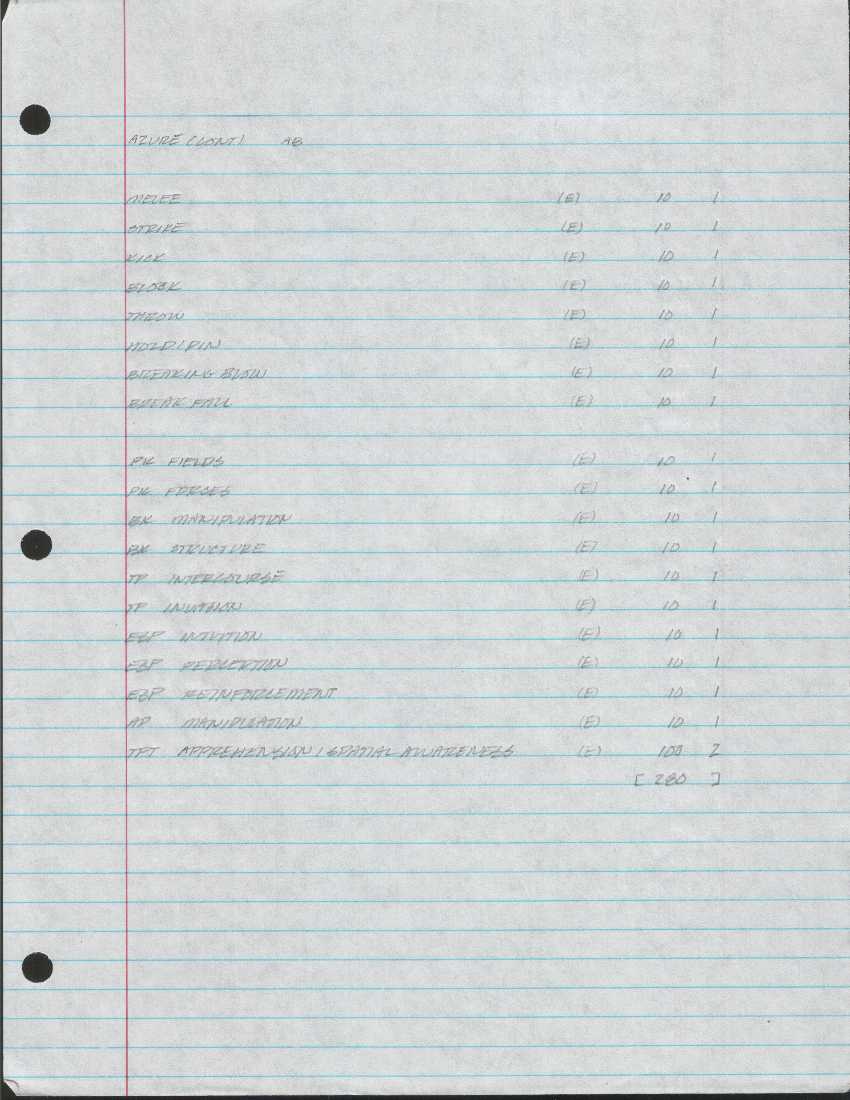 AZURE (CONT) AB
MELEE (E) 10 1
STRIKE (E) 10 1
KICK (E) 10 1
BLOCK (E) 10 1
THROW (E) 10 1
HOLD/PIN (E) 10 1
BREAKING BLOW (E) 10 1
BREAK FALL (E) 10 1
PK FIELDS (E) 10 1
PK FORCES (E) 10 1
BK MANIPULATION (E) 10 1
BK STRUCTURE (E) 10 1
TP INTERCOURSE (E) 10 1
TP INVASION (E) 10 1
ESP INTUITION (E) 10 1
ESP PERCEPTION (E) 10 1
ESP REINFORCEMENT (E) 10 1
AP MANIPULATION (E) 10 1
TPT APPREHENSION / SPATIAL AWARENESS (E) 100 2
[ 280 ]